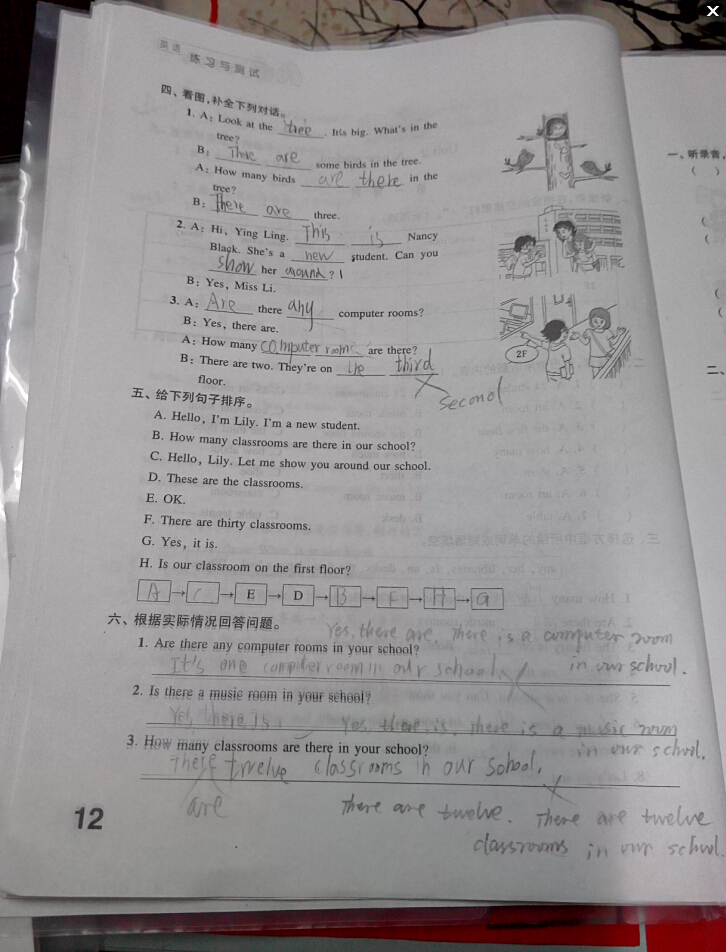 英语 练习与测试
四、看图,补全下列对话。
1. A: Look at the tree. It's big. What's in the
tree?
B: There are some birds in the tree.
A: How many birds are there in the
tree?
B: There are three.
2. A: Hi, Ying Ling. This is Nancy
Black. She's a new student. Can you
show her around?
B: Yes, Miss Li.
3. A: Are there any computer rooms?
B: Yes, there are.
A: How many computer rooms are there?
B: There are two. They're on the third
floor.
second
2F
五、给下列句子排序。
A. Hello, I'm Lily. I'm a new student.
B. How many classrooms are there in our school?
C. Hello, Lily. Let me show you around our school.
D. These are the classrooms.
E. OK.
F. There are thirty classrooms.
G. Yes, it is.
H. Is our classroom on the first floor?
A → C → E → D → B → F → H → G
六、根据实际情况回答问题。
Yes, there are. There is a computer room
1. Are there any computer rooms in your school?
in our school.
It's one computer room in our school.
2. Is there a music room in your school?
Yes, there is. Yes, there is. There is a music room
in our school.
3. How many classrooms are there in your school?
There twelve classrooms in our school.
are
There are twelve. There are twelve
classrooms in our school.
12
一、听录音,
( )
二、